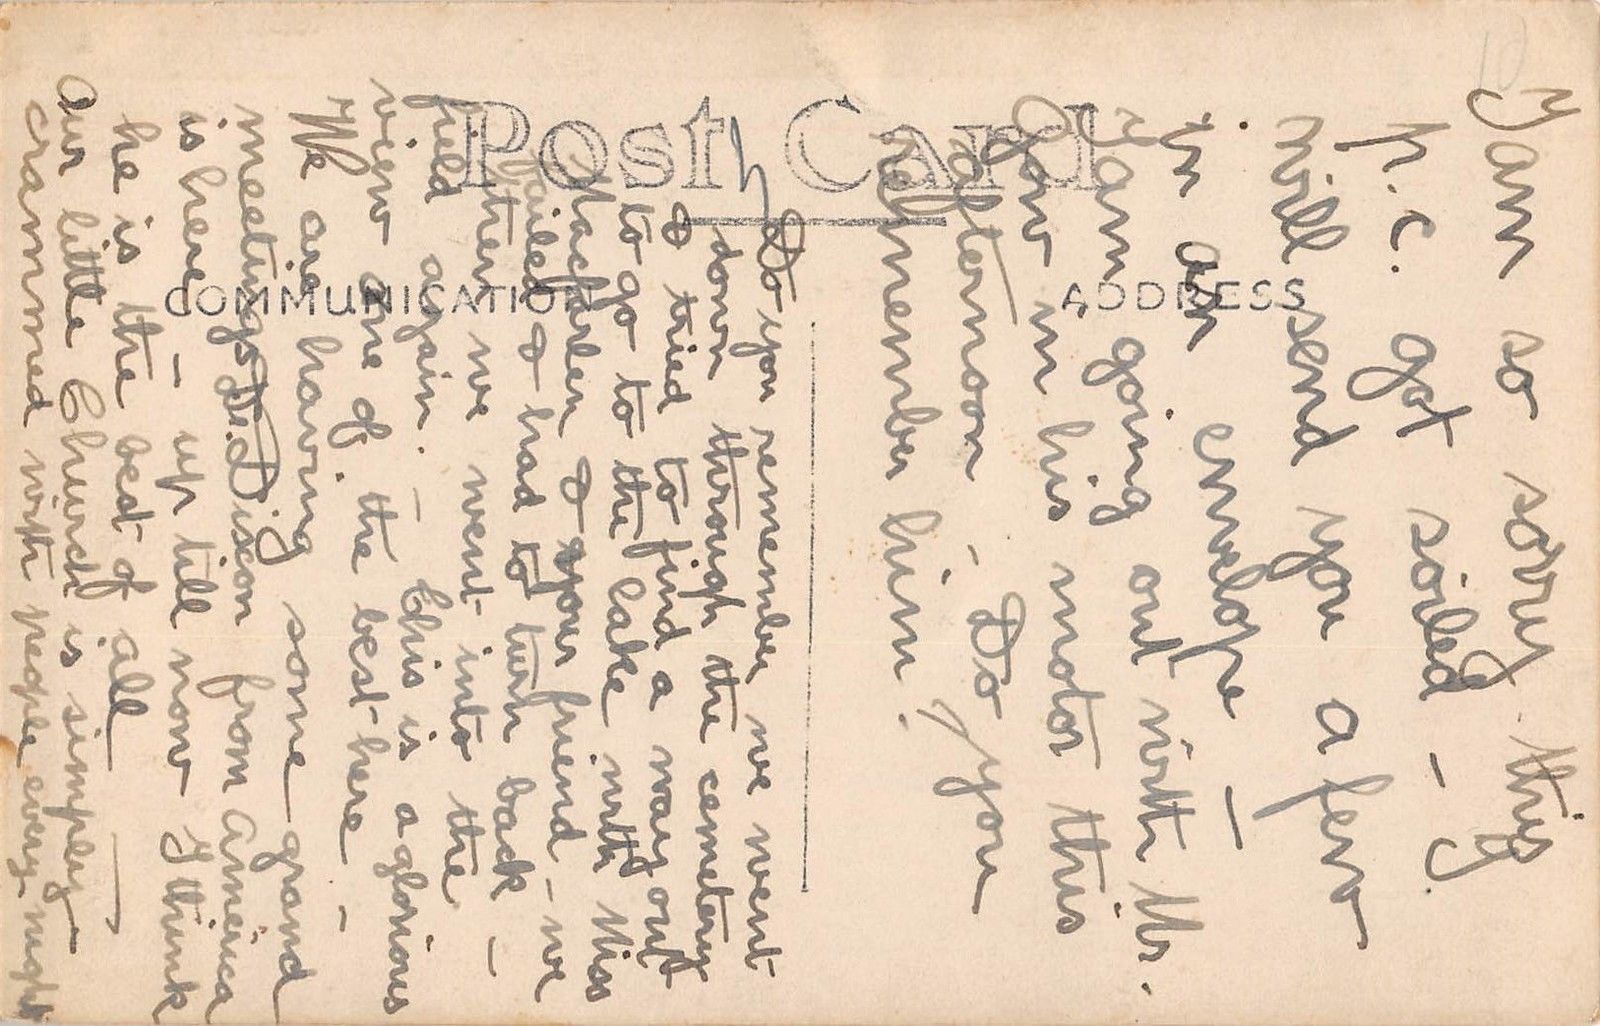 Post Card
COMMUNICATION
ADDRESS
I am so sorry this
p.c. got soiled — I
will send you a few
in an envelope —
I am going out with Mr.
Gow in his motor this
afternoon — Do you
remember him.
Do you remember we went
down through the cemetery
& tried to find a way out
to go to the lake with Miss
Macfarlen & your friend — we
failed & had to turn back —
then we went into the
field again. — This is a glorious
view one of the best here —
We are having some grand
meetings Dr. Dixon from America
is here — up till now I think
he is the best of all —
Our little Church is simply
crammed with people every night